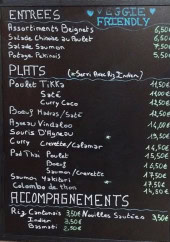 ENTREES
VEGGIE
FRIENDLY
Assortiments Beignets 6,50€
Salade Chinoise au Poulet 6,50€
Salade Saumon 7,50€
Potage Pékinois 5,50€
PLATS (*Servi Avec Riz Indien)
Poulet Tikka
Saté
Curry Coco
Boeuf Madras/Saté
Agneau Vindaloo
Souris D'Agneau
Curry Crevette/Calamar
Pad Thaï Poulet
Boeuf
Saumon/Crevette
Saumon Yakitori
Colombo de thon
ACCOMPAGNEMENTS
Riz Cantonais 3,50€ Nouilles Sautées 3,50€
Indien 3,50€
Basmati 2,50€